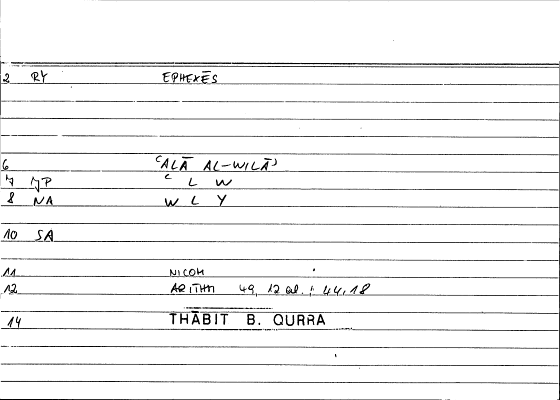 2 RY EPHEXĒS
6 ʿALĀ AL-WILĀʾ
7 ʿ L W
8 NA W L Y
10 SA
11 NICOM
12 ARITHM 49, 12 al. ; 44,18
14 THĀBIT B. QURRA